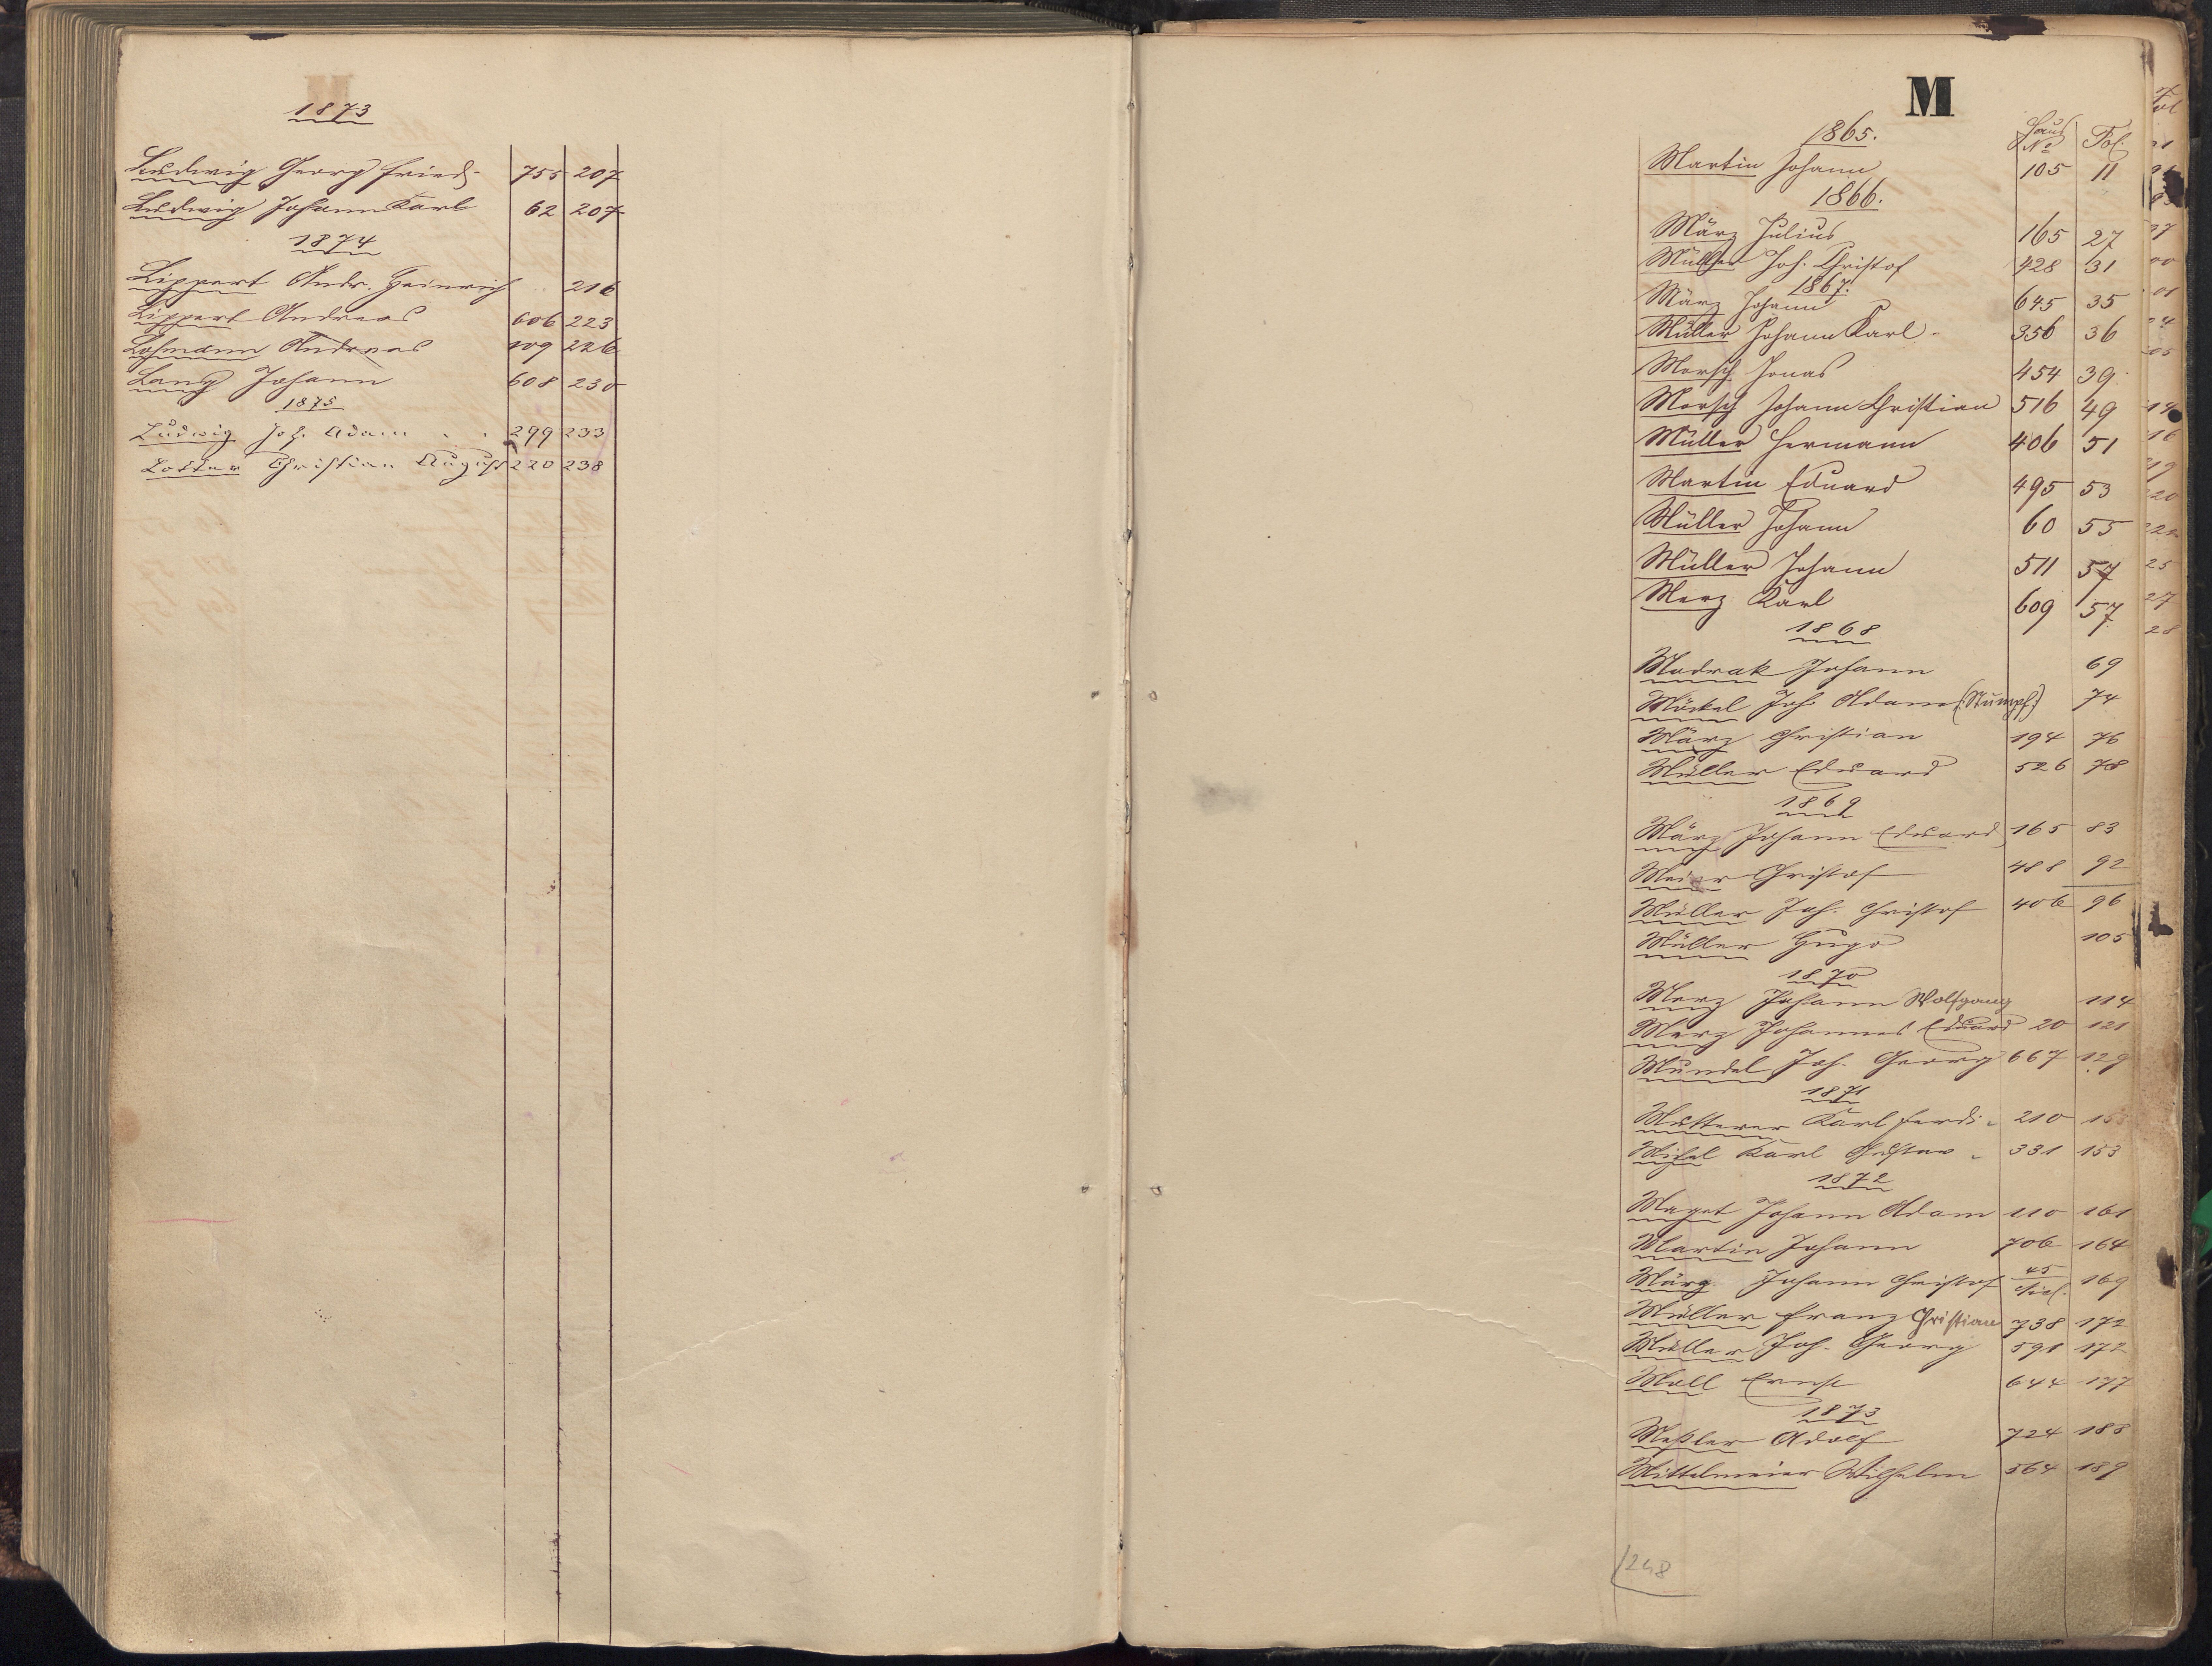 1873
Ludwig Georg Fried. 755 207
Ludwig Johann Karl 62 207
1874
Lippert Andr. Heinrich 216
Lippert Andreas 606 223
Lohmann Andreas 109 226
Lang Johann 608 230
1875
Ludwig Joh. Adam 299 233
Lotter Christian August 220 238
M
1865. Haus No Fol.
Martin Johann 105 11
1866.
März Julius 165 27
Müller Joh. Christof 428 31
1867.
März Johann 645 35
Müller Johann Karl 356 36
Morsch Jonas 454 39
Morsch Johann Christian 516 49
Müller Hermann 406 51
Martin Eduard 495 53
Müller Johann 60 55
Müller Johann 511 57
Merz Karl 609 57
1868
Modrak Johann 69
Möckel Joh. Adam (Stumpf) 74
März Christian 194 76
Müller Eduard 526 78
1869
März Johann Eduard 165 83
Meier Christof 488 92
Müller Joh. Christof 406 96
Müller Hugo 105
1870
Merz Johann Wolfgang 114
Merz Johannes Eduard 20 121
Mündel Joh. Georg 667 129
1871
Mutterer Karl Ferd. 210
Michel Karl Gustav 331 153
1872
Maget Johann Adam 110 161
Martin Johann 706 164
März Johann Christof 45 169
Müller Franz Christian 738 172
Müller Joh. Georg 591 172
Moll Ernst 644 177
1873
Meßler Adolf 724 188
Mittelmeier Wilhelm 564 189
248